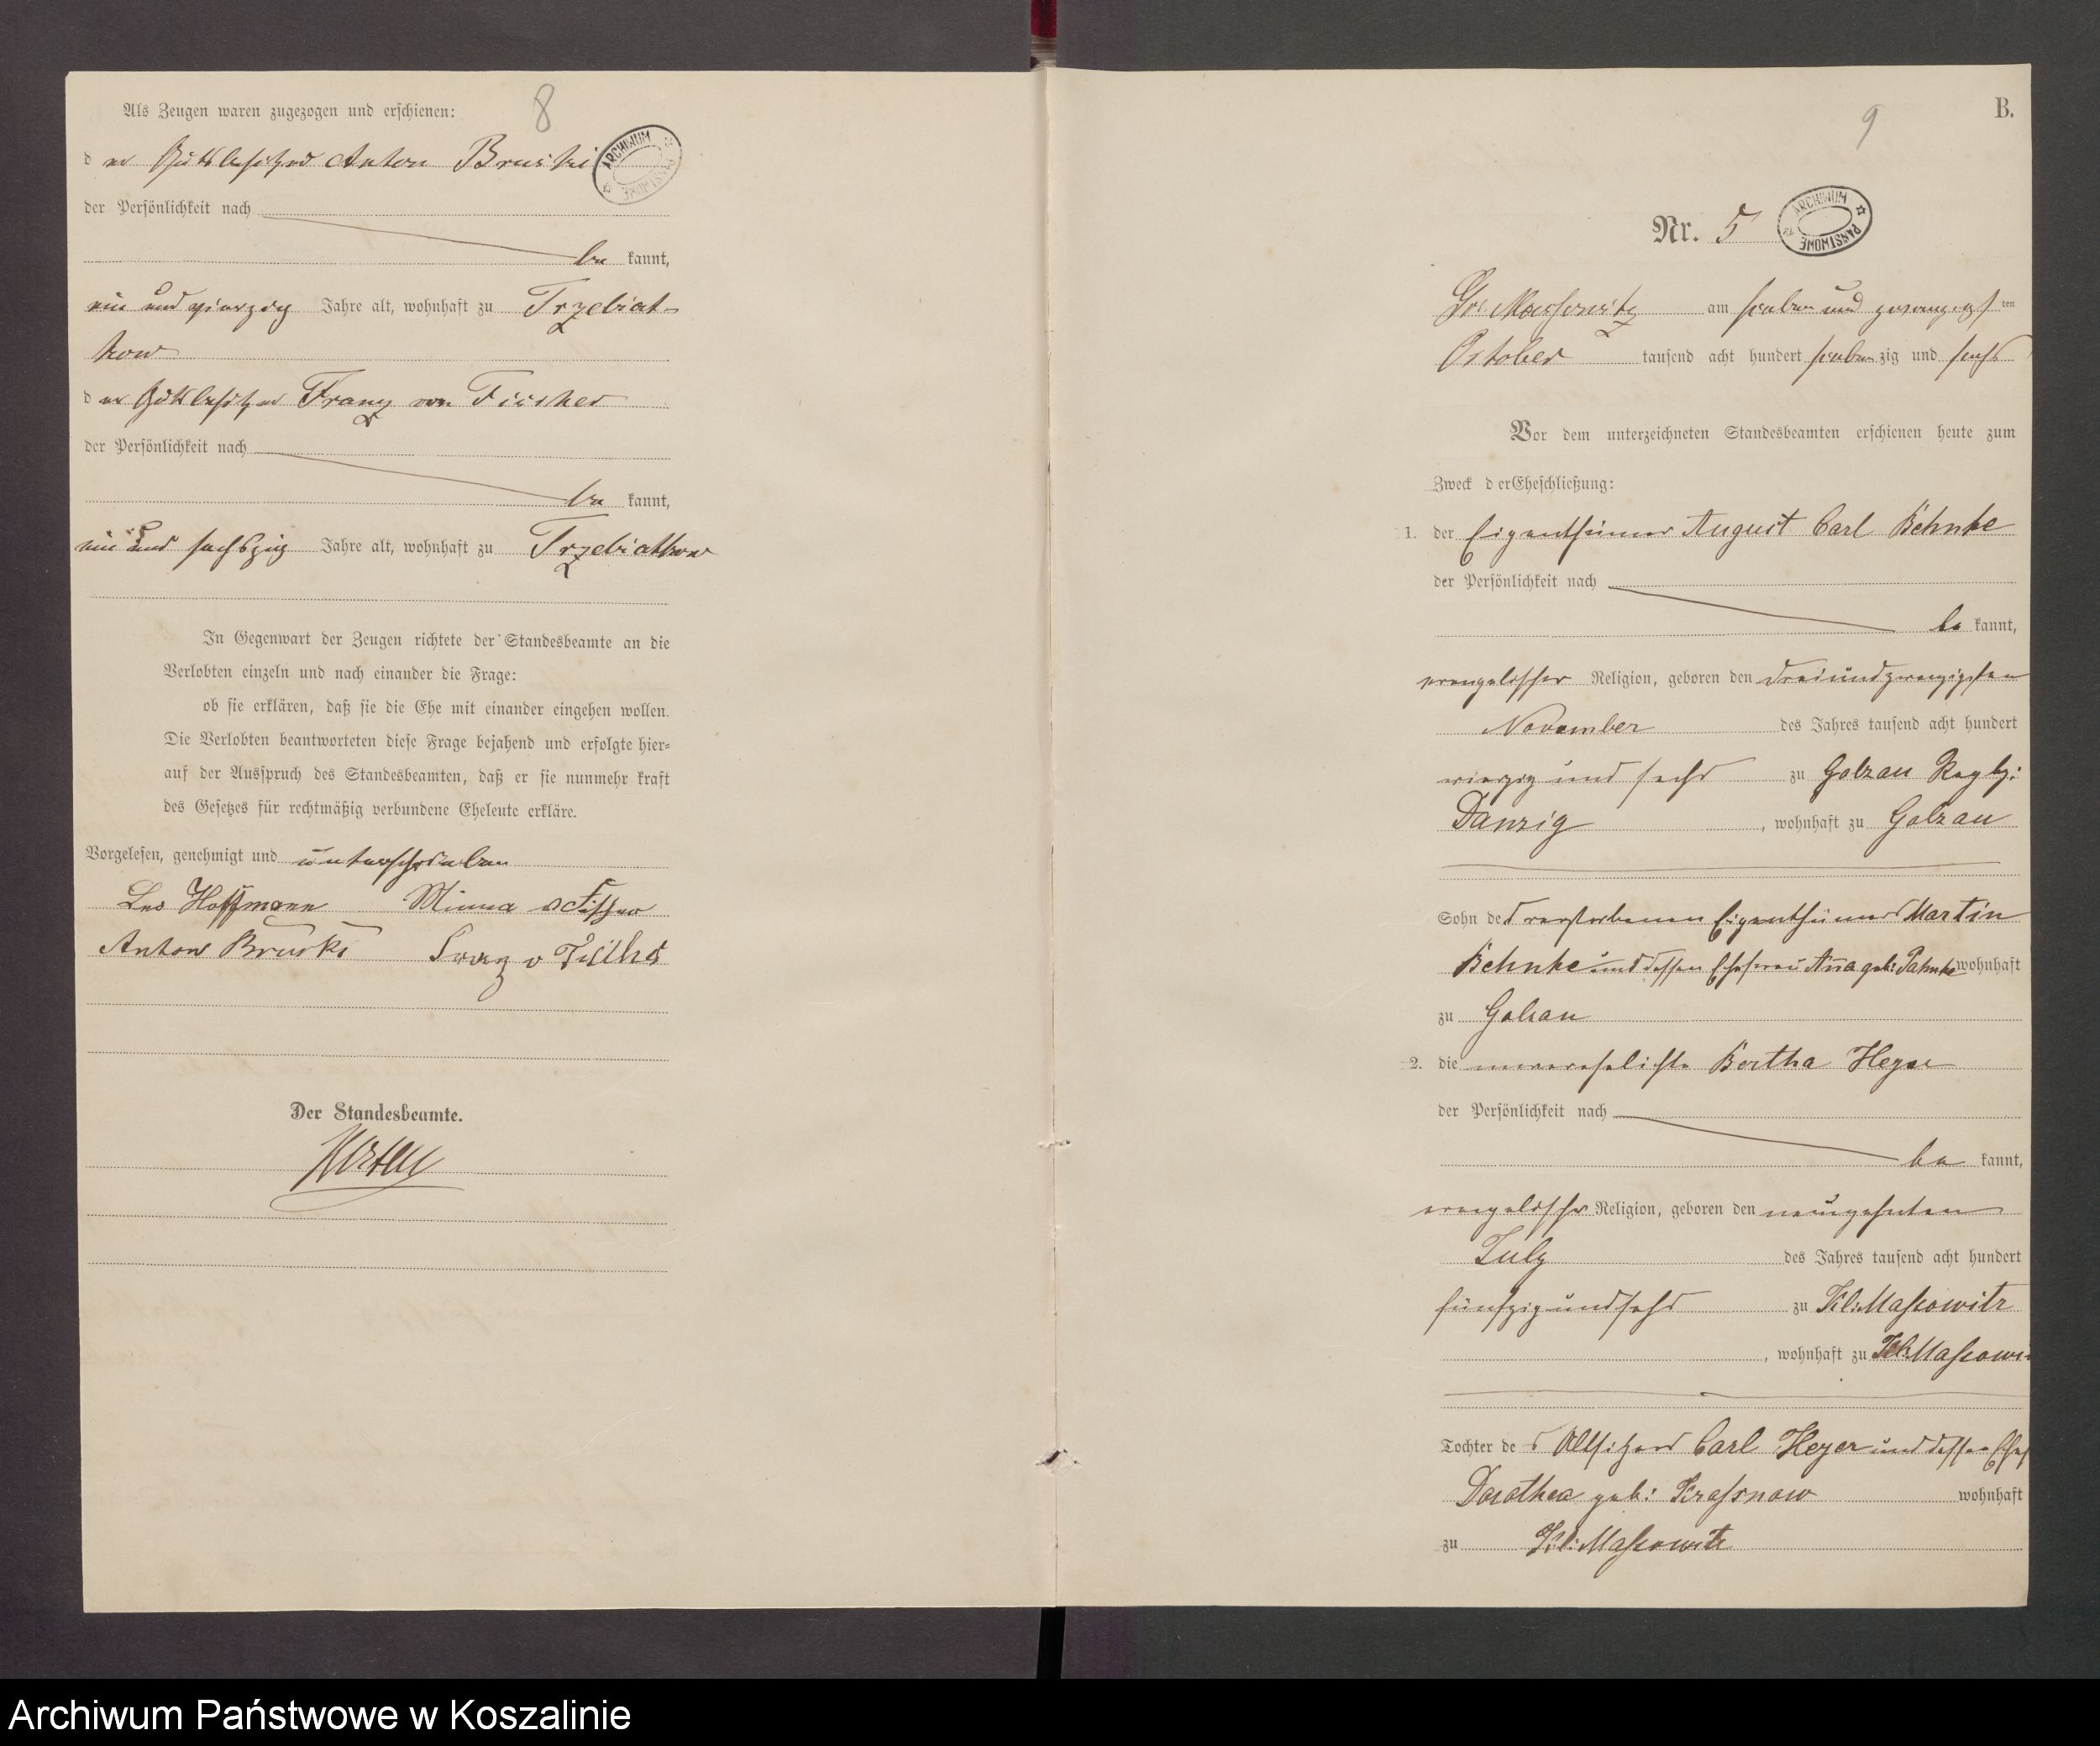 Als Zeugen waren zugezogen und erschienen:
8
der Gutsbesitzer Anton Bruski
ARCHIWUM PAŃSTWOWE
der Persönlichkeit nach
be kannt,
ein und vierzig Jahre alt, wohnhaft zu Trzebiat-
kow
der Gutsbesitzer Franz von Fischer
der Persönlichkeit nach
be kannt,
ein und sechszig Jahre alt, wohnhaft zu Trzebiatkow
In Gegenwart der Zeugen richtete der Standesbeamte an die
Verlobten einzeln und nach einander die Frage:
ob sie erklären, daß sie die Ehe mit einander eingehen wollen.
Die Verlobten beantworteten diese Frage bejahend und erfolgte hier-
auf der Ausspruch des Standesbeamten, daß er sie nunmehr kraft
des Gesetzes für rechtmäßig verbundene Eheleute erkläre.
Vorgelesen, genehmigt und unterschrieben
Leo Hoffmann Minna v Fischer
Anton Bruski Franz v
Der Standesbeamte.
9
B.
Nr. 5
ARCHIWUM PAŃSTWOWE
Gr: Massowitz am sieben und zwanzigsten
October tausend acht hundert siebenzig und sechs
Vor dem unterzeichneten Standesbeamten erschienen heute zum
Zweck der Eheschließung:
1. der Eigenthümer August Carl Behnke
der Persönlichkeit nach
be kannt,
evangelischer Religion, geboren den dreiundzwanzigsten
November des Jahres tausend acht hundert
vierzig und sechs zu Golzau Regbz:
Danzig, wohnhaft zu Golzau
Sohn des verstorbenen Eigenthümers Martin
Behnke und dessen Ehefrau Anna geb: Pahnke wohnhaft
zu Golzau
2. die unverehelichte Bertha Heyer
der Persönlichkeit nach
be kannt,
evangelischer Religion, geboren den neunzehnten
July des Jahres tausend acht hundert
fünfzig und sechs zu Kl: Massowitz
, wohnhaft zu Kl: Massowi
Tochter des Altsitzers Carl Heyer und dessen Ehef
Dorothea geb: wohnhaft
zu Kl: Massowitz
Archiwum Państwowe w Koszalinie